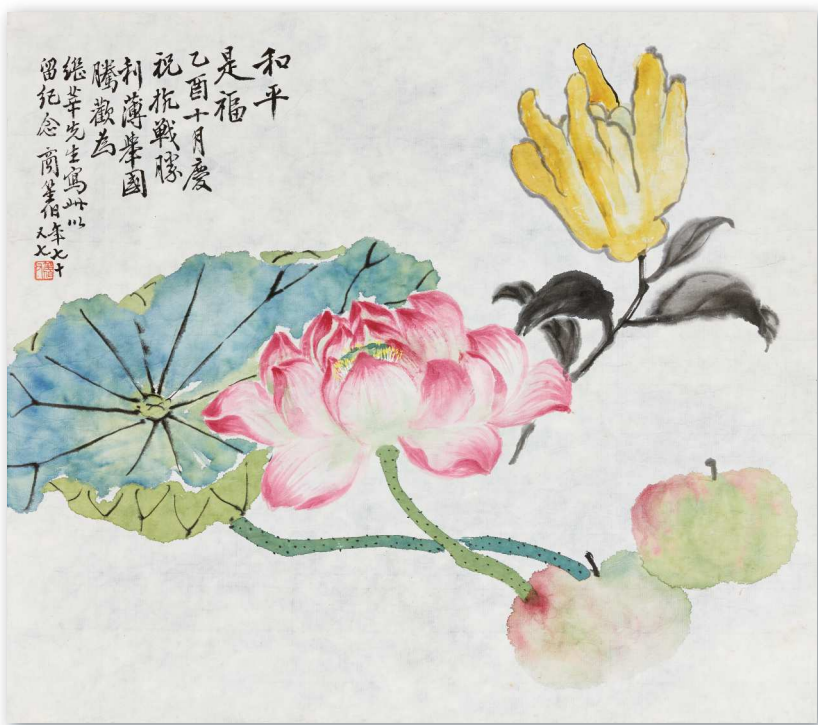 和平
是福
乙酉十月慶
祝抗戰勝
利薄舉國
騰歡為
繼華先生寫此以
留紀念 商笙伯年七十
又七